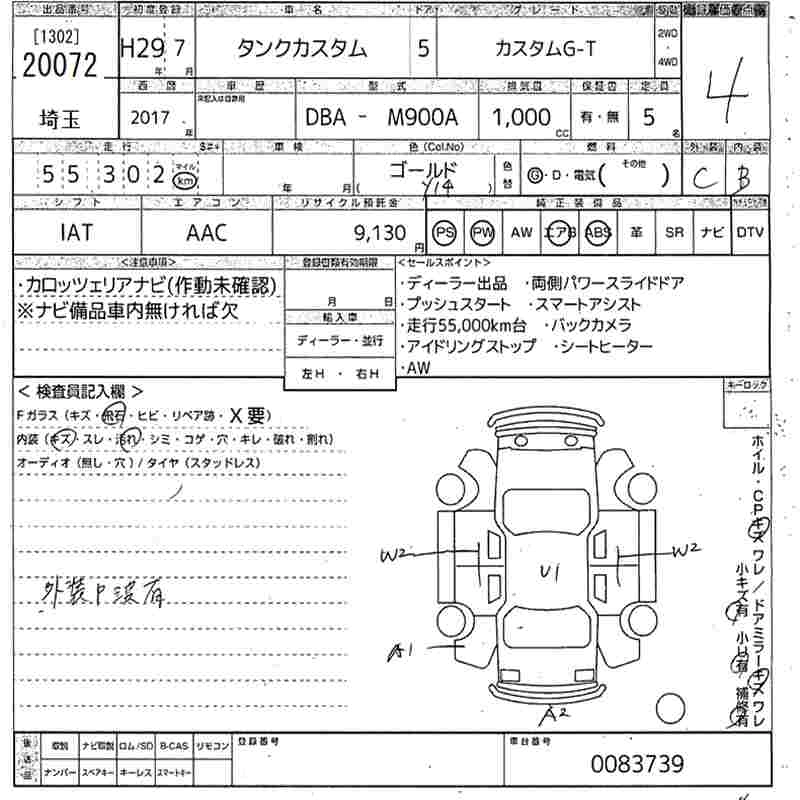 出品番号 初度登録 車名 ドア グレード 駆動 評価点
[1302]
20072 H29 7 タンクカスタム 5 カスタムG-T 2WD ・ 4WD 4
年 月
西暦 車歴 型式 排気量 保証書 定員
未記入は自家用
埼玉 2017 年 DBA - M900A 1,000 CC 有・無 5 名
走行 S#+ 車検 色(Col.No) 燃料 外装 内装
55302 マイル km 年 月 ゴールド 色替 G・D・電気( その他 ) C B
Y14
シフト エアコン リサイクル預託金 純正装備品
IAT AAC 9,130 円 PS PW AW エアB ABS 革 SR ナビ DTV
<注意事項> 登録書類有効期限 <セールスポイント>
・カロッツェリアナビ(作動未確認) 月 日 ・ディーラー出品 ・両側パワースライドドア
※ナビ備品車内無ければ欠 輸入車 ・プッシュスタート ・スマートアシスト
ディーラー・並行 ・走行55,000km台 ・バックカメラ
左H ・ 右H ・アイドリングストップ ・シートヒーター
・AW
< 検査員記入欄 > キーロック
Fガラス(キズ・飛石・ヒビ・リペア跡・X要)
内装(キズ・スレ・汚れ・シミ・コゲ・穴・キレ・破れ・割れ)
オーディオ(無し・穴)/タイヤ(スタッドレス)
ホイル・CPキズ ワレ/ドアミラーキズ ワレ
小キズ有 小U有 補修有
W2 W2
U1
外装P没有
A1
A2
後送品 取説 ナビ取説 ロム/SD B-CAS リモコン 登録番号 車台番号
ナンバー スペアキー キーレス スマートキー 0083739